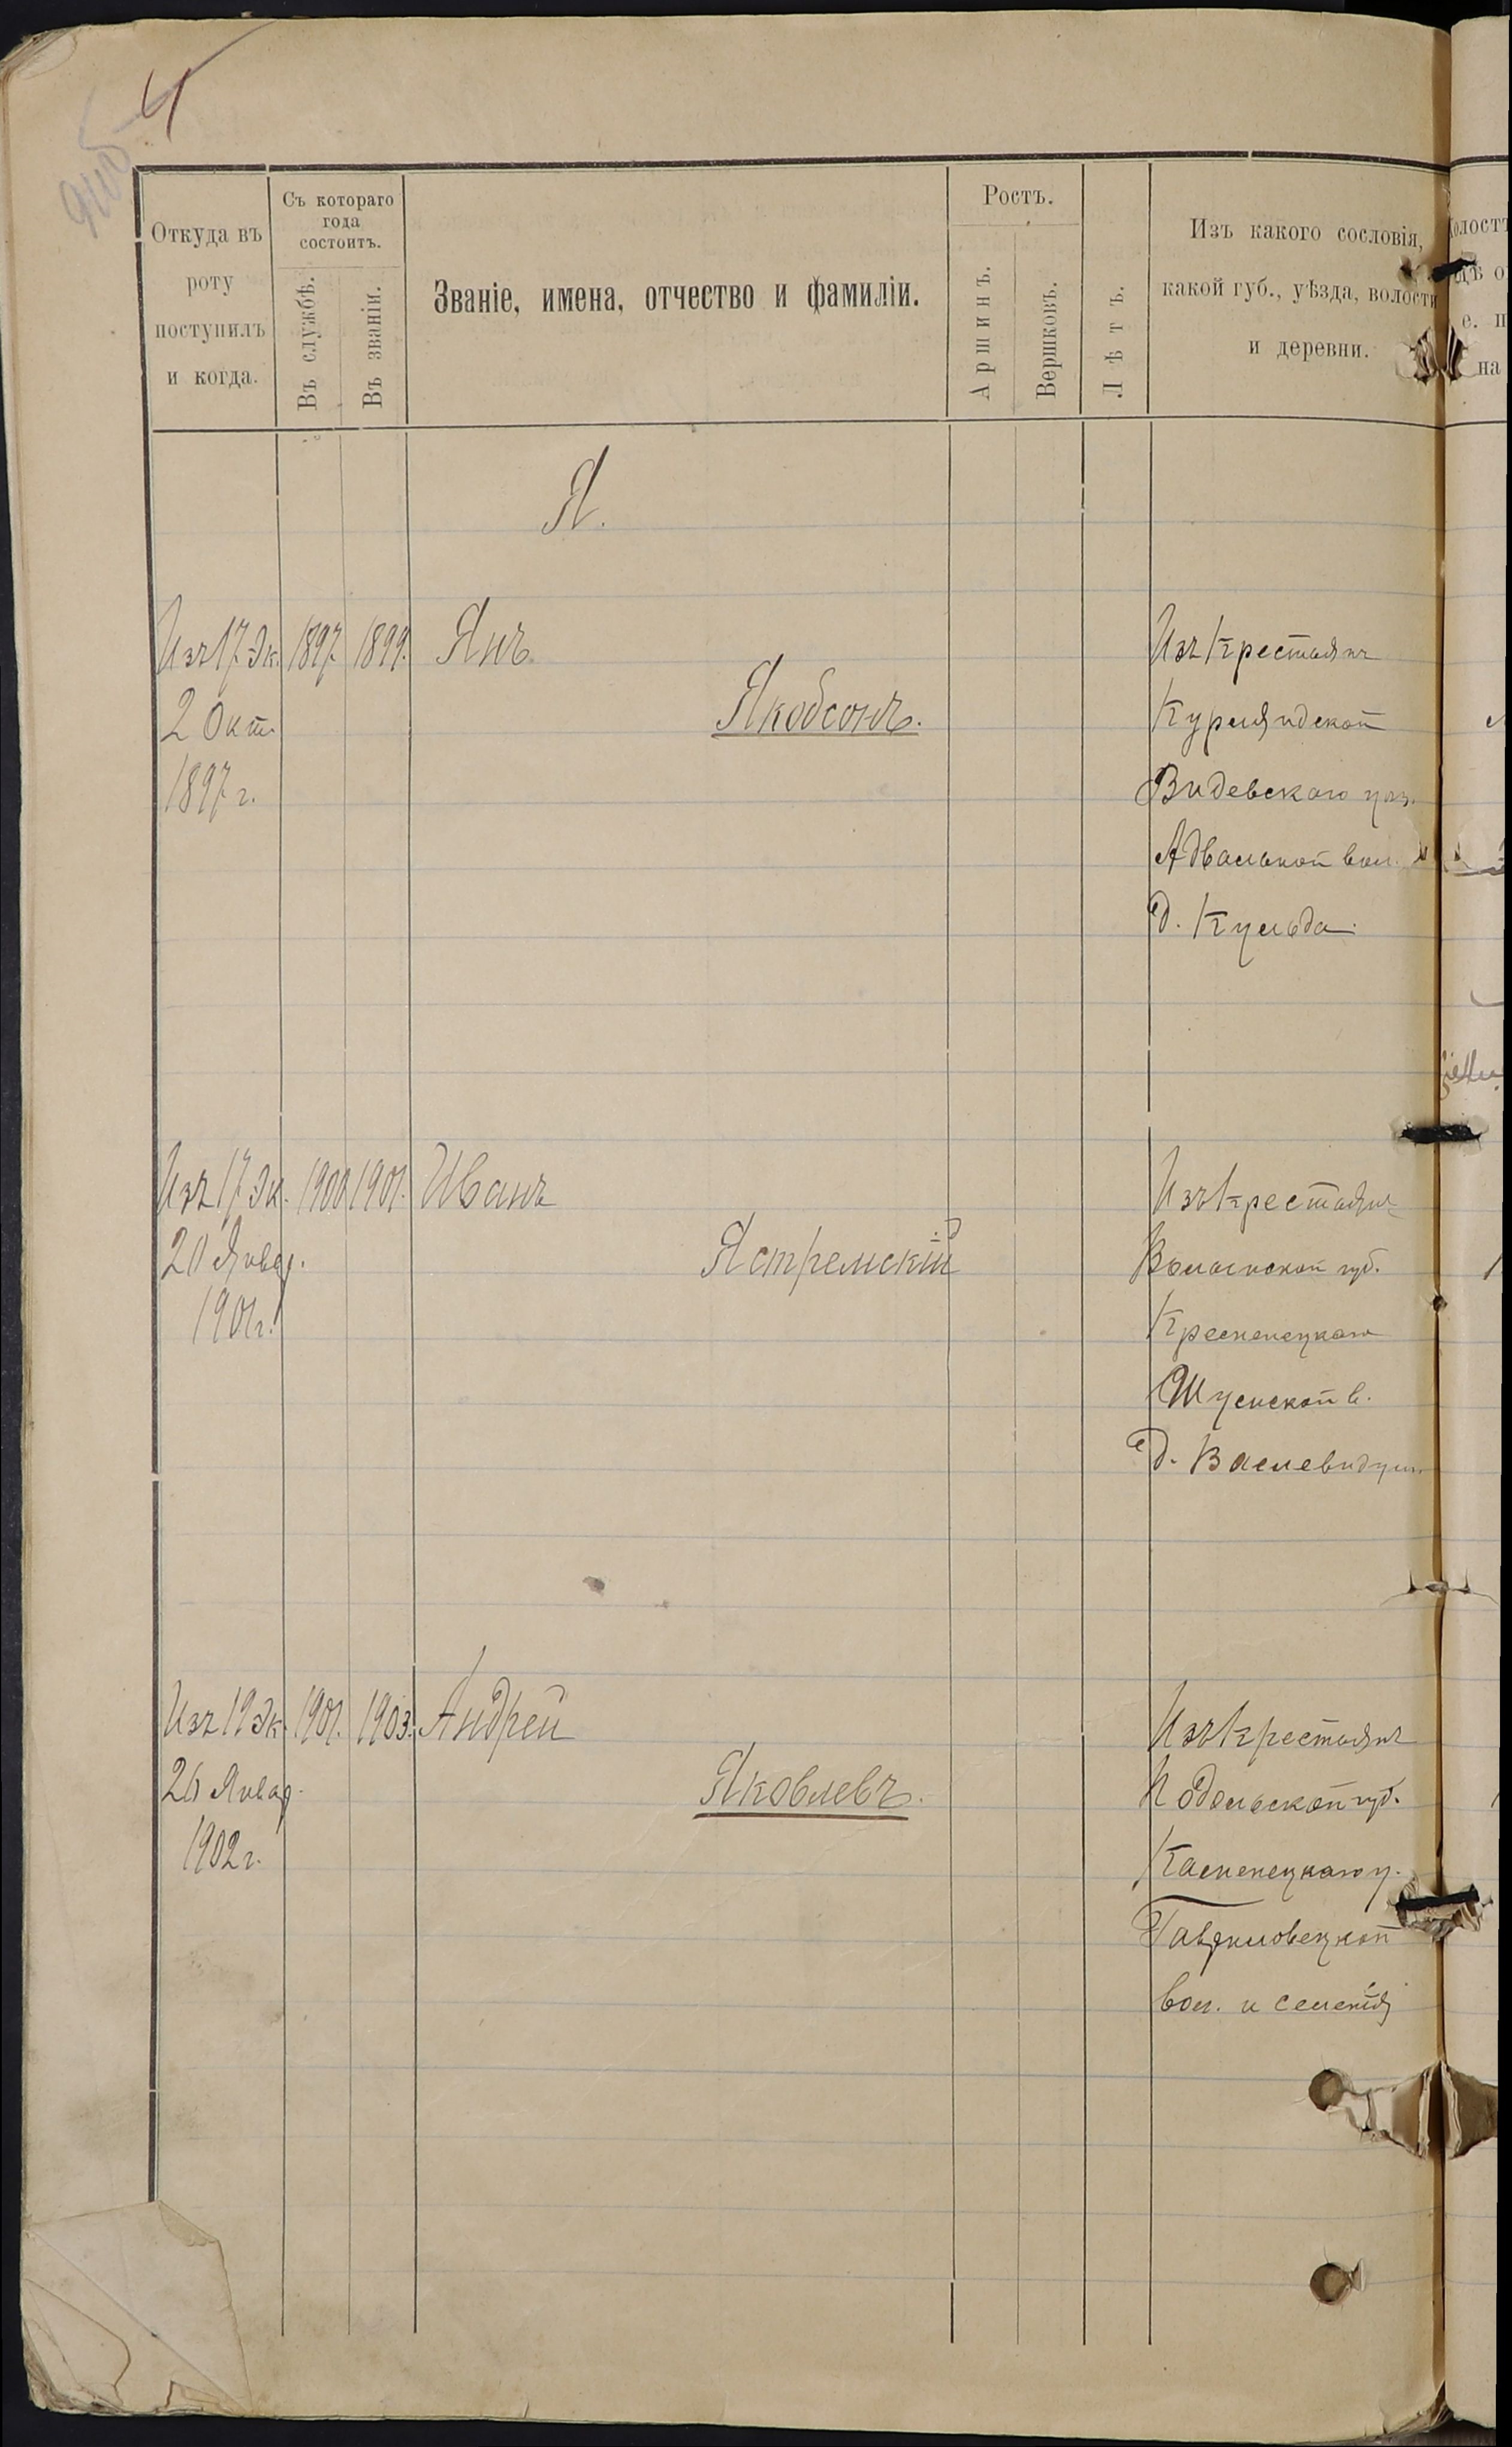 Откуда въ
роту
поступилъ
и когда.
Съ котораго
года
состоитъ.
Въ службѣ.
Въ званіи.
Званіе, имена, отчество и фамиліи.
Ростъ.
Аршинъ.
Вершковъ.
Лѣтъ.
Изъ какого сословія,
какой губ., уѣзда, волости
и деревни.
Я.
Изъ 17 Эк. 1897 1899. Янъ Изъ крестьянъ
2 Окт. Якобсонъ. Курляндской
1897 г. Видевского
Адвальной вол.
д. Кульда.
Изъ 17 Эк. 1900 1901. Иванъ Изъ крестьянъ
20 Январ. Ястремскій Волынской губ.
1901 г. Кременецкаго
Шумской в.
д.
Изъ 19 Эк. 1901. 1903. Андрей Изъ крестьянъ
26 Январ. Яковлевъ. Подольской губ.
1902 г. Каменецкаго у.
Гавриловецкой
вол. и селенія